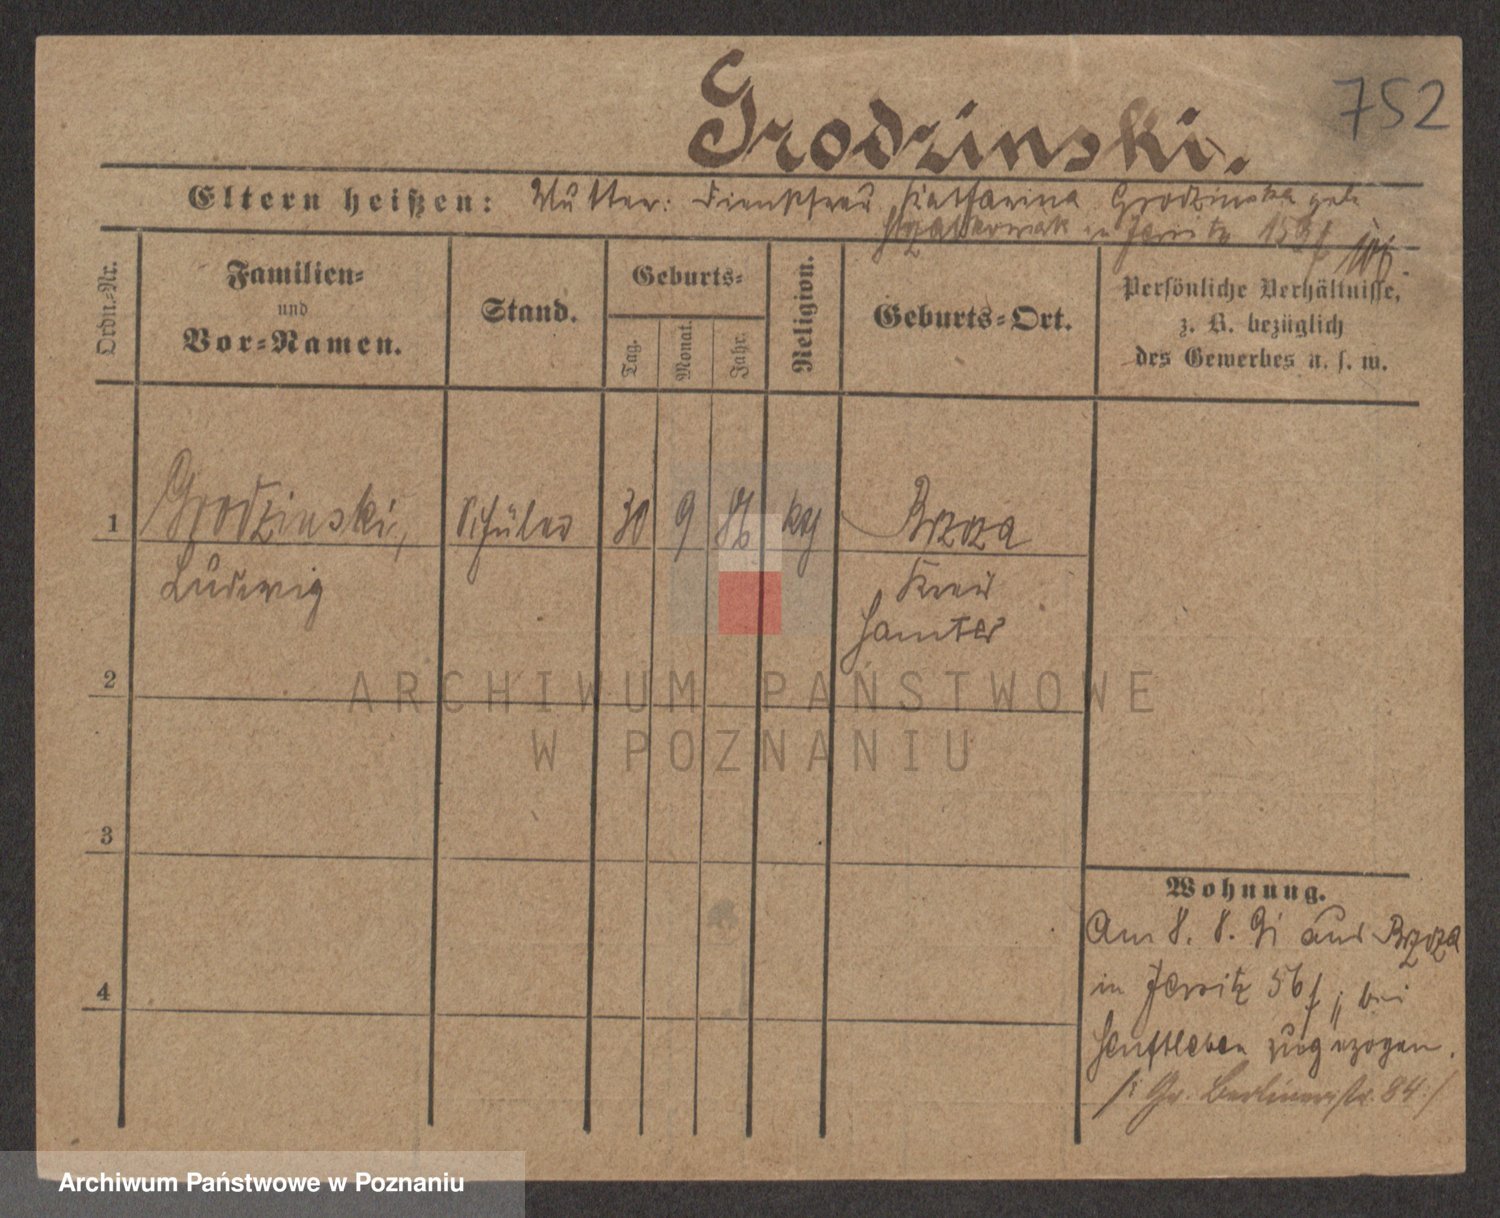 752
Grodzinski.
Eltern heißen: Mutter: Dienstfrau Katharina Grodzinska geb.
in Jersitz
Ordn.-Nr.
Familien-
und
Vor-Namen.
Stand.
Geburts-
Tag.
Monat.
Jahr.
Religion.
Geburts-Ort.
Persönliche Verhältnisse,
z. B. bezüglich
des Gewerbes u. s. w.
1 Grodzinski, Schüler 30 9 86 kg Brzoza
Ludwig Kreis
Samter
2
ARCHIWUM PAŃSTWOWE
W POZNANIU
3
4
Wohnung.
Am 8. 8. 91 aus Brzoza
in Jersitz 56f, bei
Senftleben zugezogen.
/: Gr. Berlinerstr. 84 :/
Archiwum Państwowe w Poznaniu